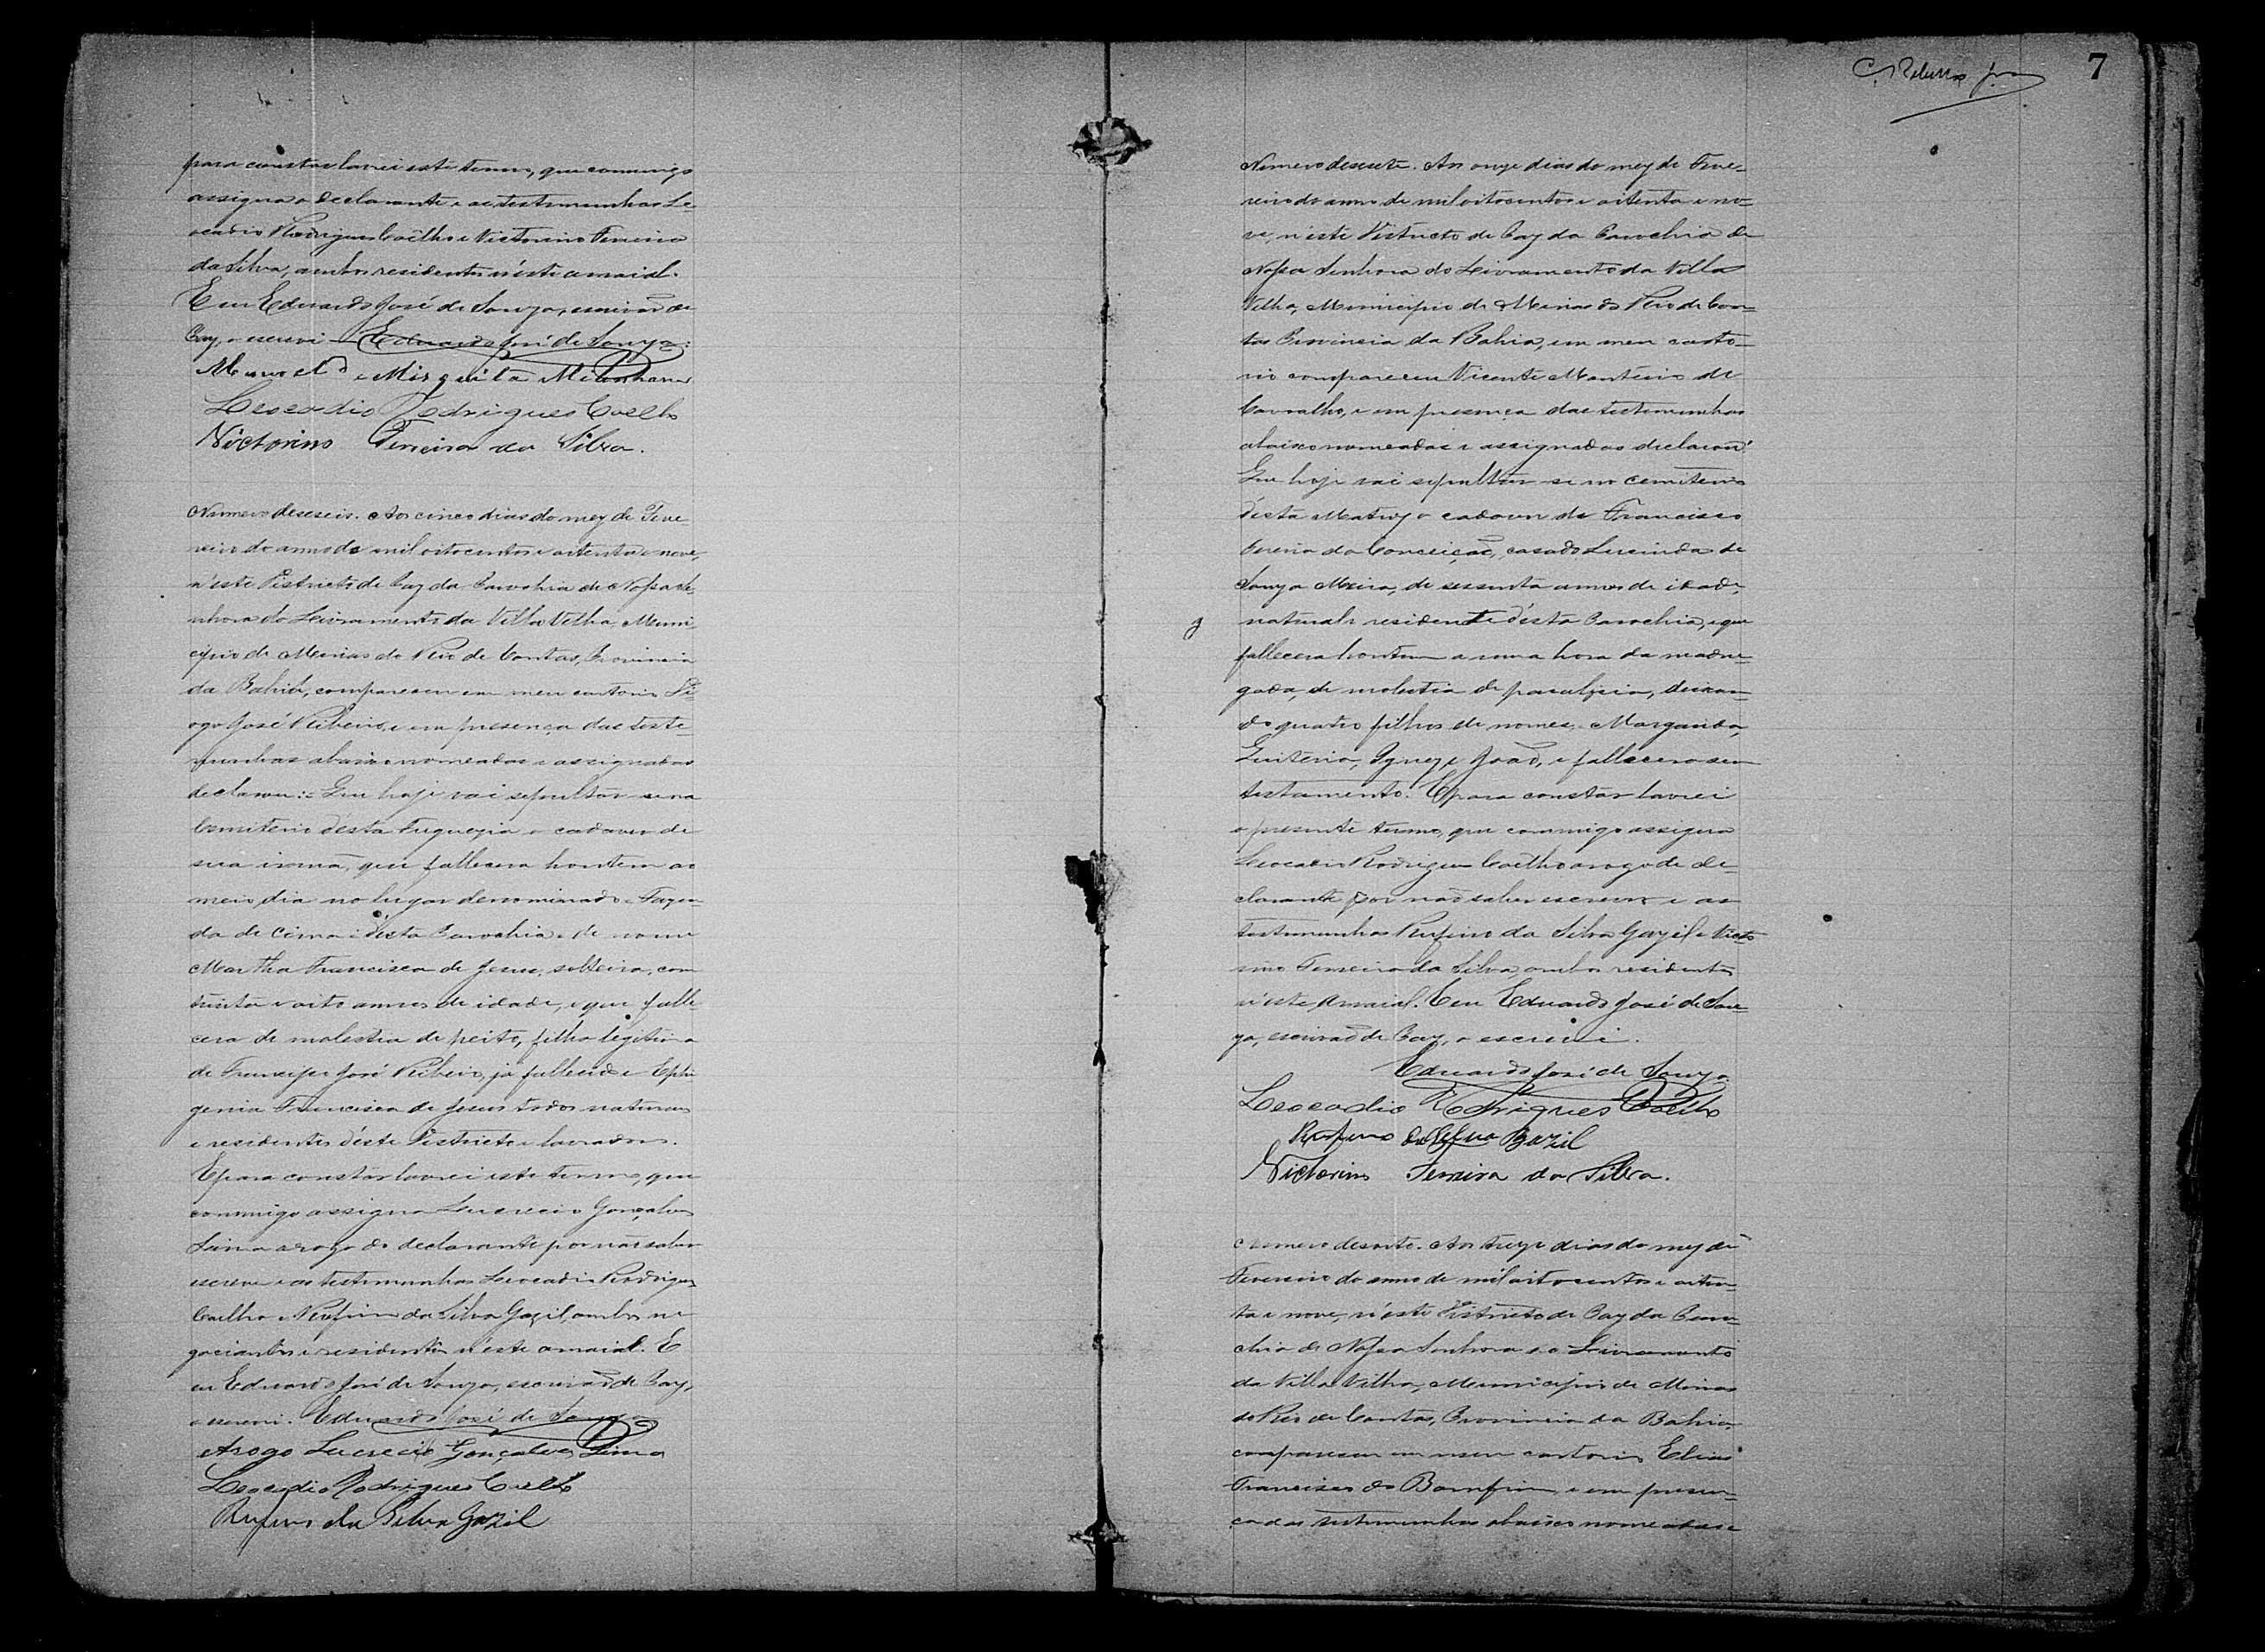 para constar lavrei este termo, que commigo
assigna o declarante e as testemunhas Le-
ocadio Rodrigues Coêlho e Victorino Ferreira
da Silva, ambos residentes n'éste arraial.
E eu Eduardo José de Souza, escrivão de
Paz, o escrevi Eduardo José de Souza.
Manoel de Misquita
Leocadio Rodrigues Coelho
Victorino Ferreira da Silva.
Numero deseseis. Aos cinco dias do mez de Feve
reiro do anno de mil oitocentos e oitenta e nove,
n'éste Districto de Paz da Parochia de Nossa Se-
nhora do Livramento da Villa Velha, Muni-
cipio de Minas do Rio de Contas, Provincia
da Bahia, compareceu em meu cartorio Di-
ogo José Ribeiro, e em presença das teste-
munhas abaixo nomeadas e assignadas
declarou:= Que hoje vai sepultar se no
Cemiterio desta Freguezia o cadaver de
sua irmã, que fallecera hontem ao
meio dia no lugar denominado - Fazen-
da de Cima - désta Parochia, de nome
Martha Francisca de Jesus, solteira, com
trinta e oito annos de idade, e que falle-
cera de molestia de peito, filha legitima
de José Ribeiro, já fallecido e Ephi
genia Francisca de Jesus todos naturaes
e residentes déste Districto e lavradores.
E para constar lavrei este termo, que
commigo assigna Lucrecio Gonçalves
Lima arogo do declarante por não saber
escrever e as testemunhas Leocadio Rodrigues
Coelho e Rufino da Silva Gazil, ambos ne-
gociantes e residentes n'éste arraial. E
eu Eduardo José de Souza, escrivão de Paz,
o escrevi. Eduardo José de Souza
Arogo Lucrecio Gonçalves Lima
Leocadio Rodrigues Coelho
Rufino da Silva Gazil
7
Numero desesete. Aos onze dias do mez de Feve-
reiro do anno de mil oitocentos e oitenta e no-
ve, n'éste Districto de Paz da Parochia de
Nossa Senhora do Livramento da Villa
Velha, Municipio de Minas do Rio de Con-
tas Provincia da Bahia, em meu carto-
rio compareceu Vicente Monteiro de
Carvalho, e em presença das testemunhas
abaixo nomeadas e assignadas declarou:
Que hoje vai sepultar-se no Cemiterio
désta Matriz o cadaver de Francisco
Pereira da Conceição, casado Lucinda de
Souza Meira, de sessenta annos de idade,
natural e residente désta Parochia, e que
fallecera hontem a uma hora da madru-
gada, de molestia de paralisia, deixan-
do quatro filhos de nomes, Margarida,
Quiteria, Ignez e João, e fallecera sem
testamento. E para constar lavrei
o presente termo, que commigo assigna
Leocadio Rodrigues Coêlho arogo de de-
clarante por não saber escrever e as
testemunhas Rufino da Silva Gazil e Victo
rino Ferreira da Silva, ambos residentes
n'éste Arraial. E eu Eduardo José de Sou-
za, escrivão de Paz, o escrevi.
Eduardo José de Souza
Leocadio Rodrigues Coelho
Rufino da Silva Gazil
Victorino Ferreira da Silva.
Numero desoito. Aos treze dias do mez de
Fevereiro do anno de mil oitocentos e oiten-
ta e nove, n'éste Districto de Paz da Paro-
chia de Nossa Senhora do Livramento
da Villa Velha, Municipio de Minas
do Rio de Contas, Provincia da Bahia,
compareceu em meu cartorio Elias
Francisco do Bomfim, e em presen-
ça das testemunhas abaixo nomeadas e